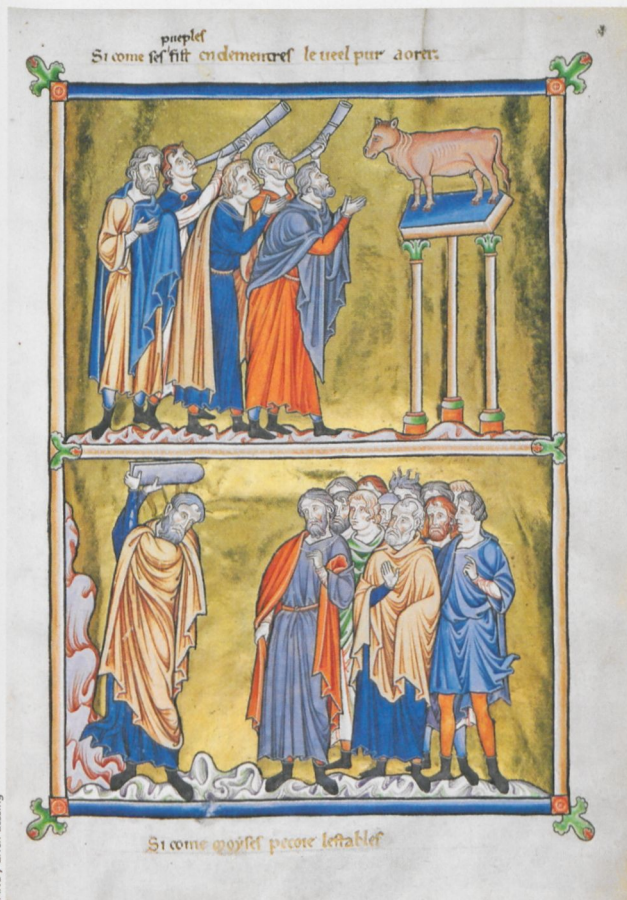 pueples
Si come ses fill' en dementres le veel pur aorer.
Si come Moyses pecoie lestables